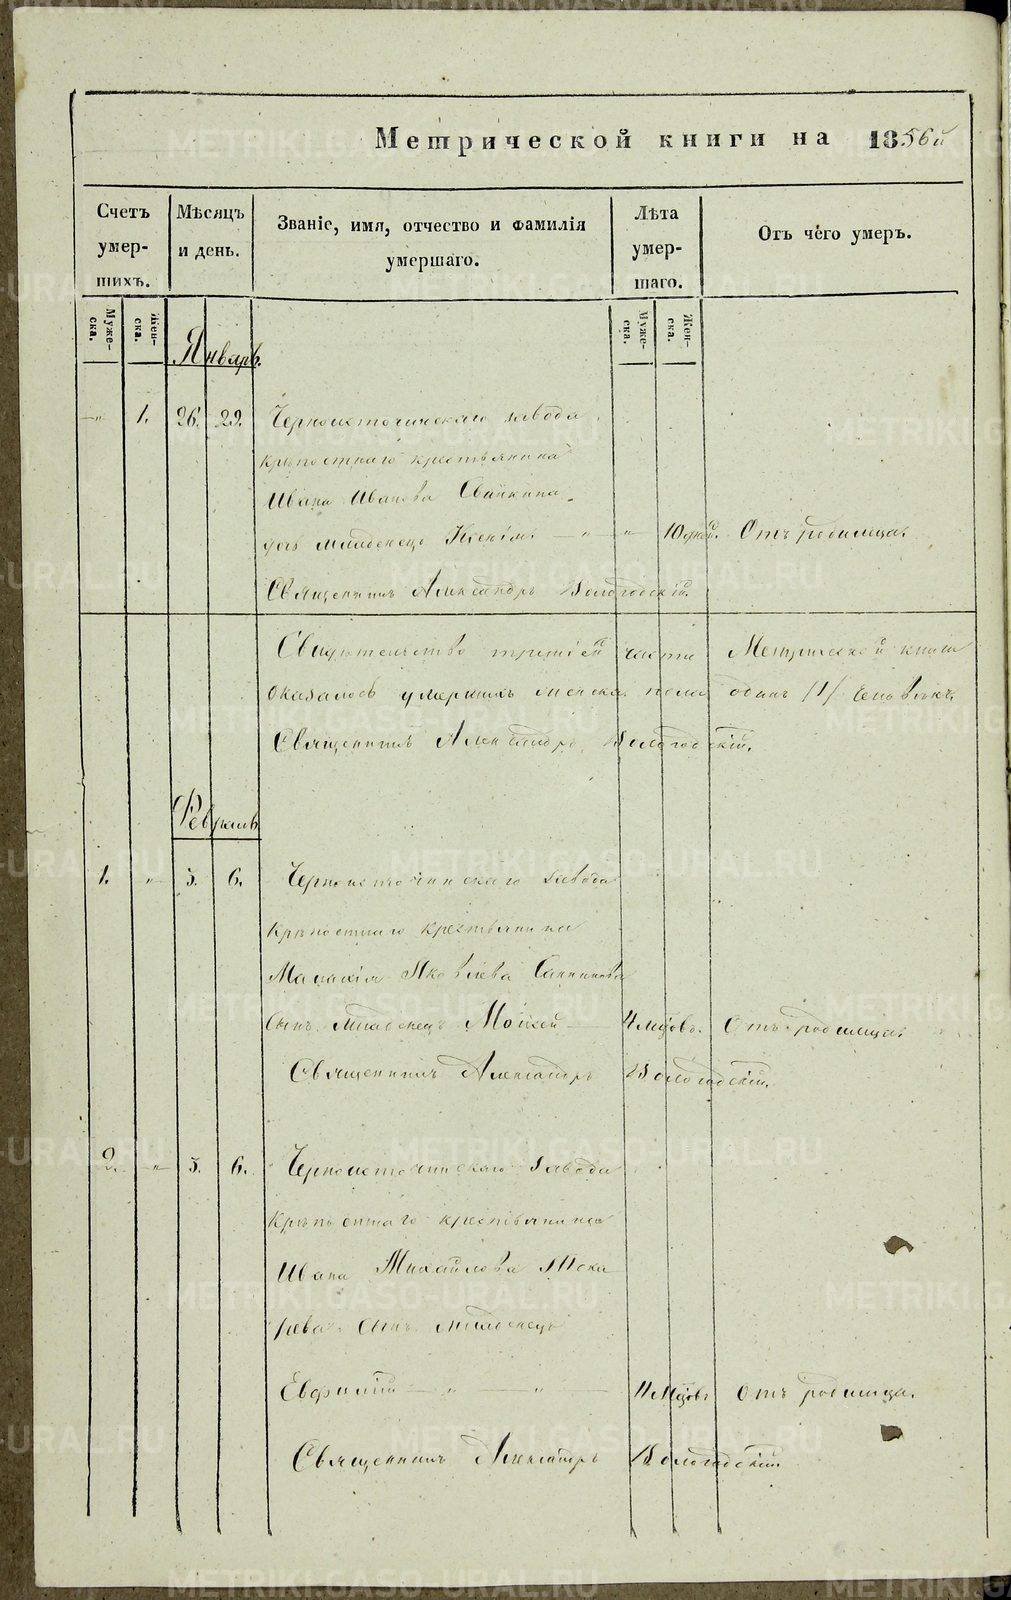 Метрической книги на 1856й
Счетъ умер- шихъ.
Мѣсяцъ и день.
Званіе, имя, отчество и фамилія умершаго.
Лѣта умер- шаго.
Отъ чего умеръ.
Муже- ска.
Жен- ска.
Муже- ска.
Жен- ска.
Январь.
1. 26. 29. Черноисточинскаго завода
крѣпостнаго крестьянина
Ивана Иванова
дочь младенецъ Ксенія 10 дней. Отъ родимца.
Священникъ Александръ Вологодскій.
Свидѣтельство третіей части Метрической книги
оказалось умершихъ женска пола одинъ /1/ человѣкъ.
Священникъ Александръ Вологодскій.
Февраль
1. " 5. 6. Черноисточинскаго завода
крѣпостнаго крестьянина
Малахія Яковлева Санникова
сынъ младенецъ Моисей 4 мѣсцовъ. Отъ родимца.
Священникъ Александръ Вологодскій.
2. " 5. 6. Черноисточинскаго завода
крѣпостнаго крестьянина
Ивана Михайлова Мока
рева сынъ младенецъ
Евфимій " " мѣсцовъ Отъ родимца.
Священникъ Александръ Вологодскій.
METRIKI.GASO-URAL.RU